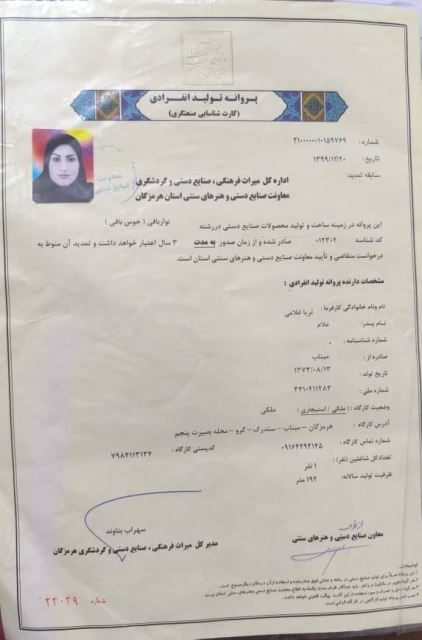 پروانه تولید انفرادی
(کارت شناسایی صنعتگری)
شماره : ۳۱۰۰۰۰۰۰۱۰۱۵۹۷۶۹
تاریخ : ۱۳۹۹/۱۲/۲۰
سابقه تمدید:
اداره کل میراث فرهنگی ، صنایع دستی و گردشگری
معاونت صنایع دستی و هنرهای سنتی استان هرمزگان
این پروانه در زمینه ساخت و تولید محصولات صنایع دستی در رشته نواربافی ( خوس بافی )
کد شناسه ۰۱۲۳۰۴ صادر شده و از زمان صدور به مدت ۳ سال اعتبار خواهد داشت و تمدید آن منوط به
درخواست متقاضی و تأیید معاونت صنایع دستی و هنرهای سنتی استان است.
مشخصات دارنده پروانه تولید انفرادی :
نام و نام خانوادگی کارفرما : ثریا غلامی
نام پدر: غلام
شماره شناسنامه : ۰
صادره از : میناب
تاریخ تولد : ۱۳۷۳/۰۸/۱۳
شماره ملی : ۳۴۱۰۴۱۱۲۸۳
وضعیت کارگاه : ( ملکی / استیجاری ) ملکی
آدرس کارگاه : هرمزگان - میناب - سندرک - گرو - محله بصیرت پنجم
شماره تماس کارگاه : ۰۹۱۶۴۲۹۲۱۴۵ کدپستی کارگاه : ۷۹۸۴۱۱۳۱۳۴
تعداد کل شاغلین (نفر) : ۱ نفر
ظرفیت تولید سالانه: ۱۹۲ متر
سهراب بناوند
معاون صنایع دستی و هنرهای سنتی
مدیر کل میراث فرهنگی ، صنایع دستی و گردشگری هرمزگان
توضیحات:
شماره ۲۲۰۲۹